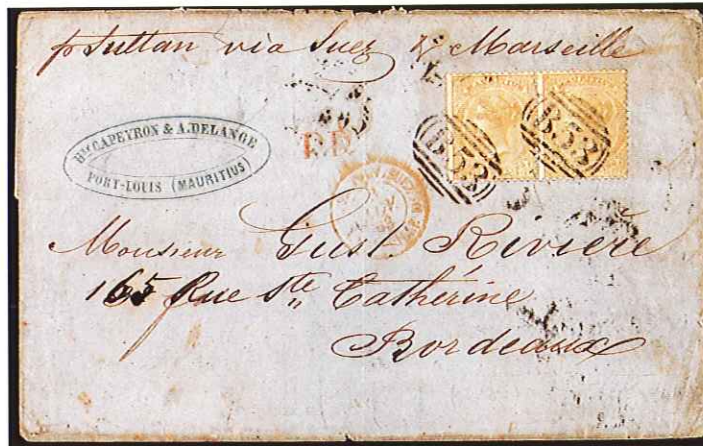 pr Sultan via Suez & Marseille
Hte CAPEYRON & A. DELANGE
PORT-LOUIS (MAURITIUS)
P.D.
B53
B53
Monsieur Gust Rivière
165 Rue Ste Cathérine
Bordeaux